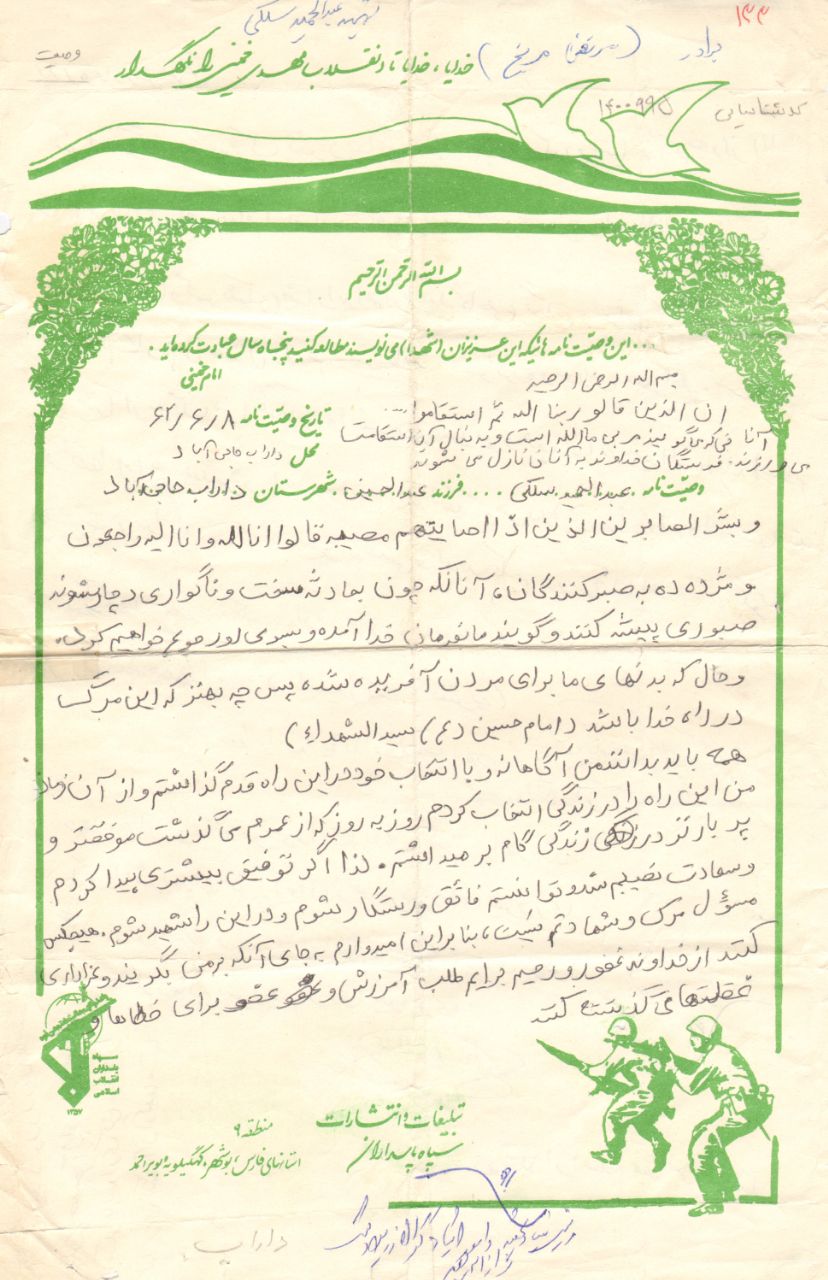 ۱۳۳
شهید عبدالحمید سلکی
برادر (مرتضی مریخ)
وصیت
خدایا، خدایا تا انقلاب مهدی خمینی را نگهدار
کد شناسایی ۱۴۰۰۹۹۵
بسم الله الرحمن الرحیم
...این وصیت نامه هائیکه این عزیزان (شهدا) می نویسند مطالعه کنید پنجاه سال عبادت کرده اید.
امام خمینی
بسم اله الرحمن الرحیم
ان الذین قالو ربنا اله ثم استقاموا...
تاریخ وصیت نامه ۶۲/۶/۸
آنانی که می گویند مربی ما الله است و به دنبال آن استقامت
محل داراب حاجی آباد
می ورزند. فرشتگان خداوند به آنان نازل می شوند
وصیت نامه. عبدالحمید سلکی .... فرزند عبدالحسین. شهرستان داراب حاجی آباد
و بشر الصابرین الذین اذا اصابتهم مصیبه قالوا انا لله و انا الیه راجعون
و مژده ده به صبر کنندگان، آنانکه چون بحادثه سخت و ناگواری دچار شوند
صبوری پیشه کنند و گویند ما بفرمان خدا آمده و بسوی او رجوع خواهیم کرد.
و حال که بدنهای ما برای مردن آفریده شده پس چه بهتر که این مرگ
در راه خدا باشد (امام حسین (ع) سید الشهداء)
همه باید بدانند من آگاهانه و با انتخاب خود در این راه قدم گذاشتم و از آن زمانکه
من این راه را در زندگی انتخاب کردم روز به روز که از عمرم می گذشت موفقتر و
پر بارتر در زندگی گام بر میداشتم. لذا اگر توفیق بیشتری پیدا کردم
و سعادت نصیبم شد و توانستم فائق و رستگار شوم و در این راه شهید شوم. هیچکس
مسؤل مرگ و شهادتم نیست، بنابراین امیدوارم به جای آنکه بر من بگریند و عزاداری
کنند از خداوند غفور و رحیم برایم طلب آمرزش و عفو برای خطاها و
غفلتهای گذشته کنند
سپاه پاسداران انقلاب اسلامی
۱۳۵۷
تبلیغات و انتشارات
سپاه پاسداران
منطقه ۹
استانهای فارس، بوشهر، کهگیلویه و بویراحمد
داراب